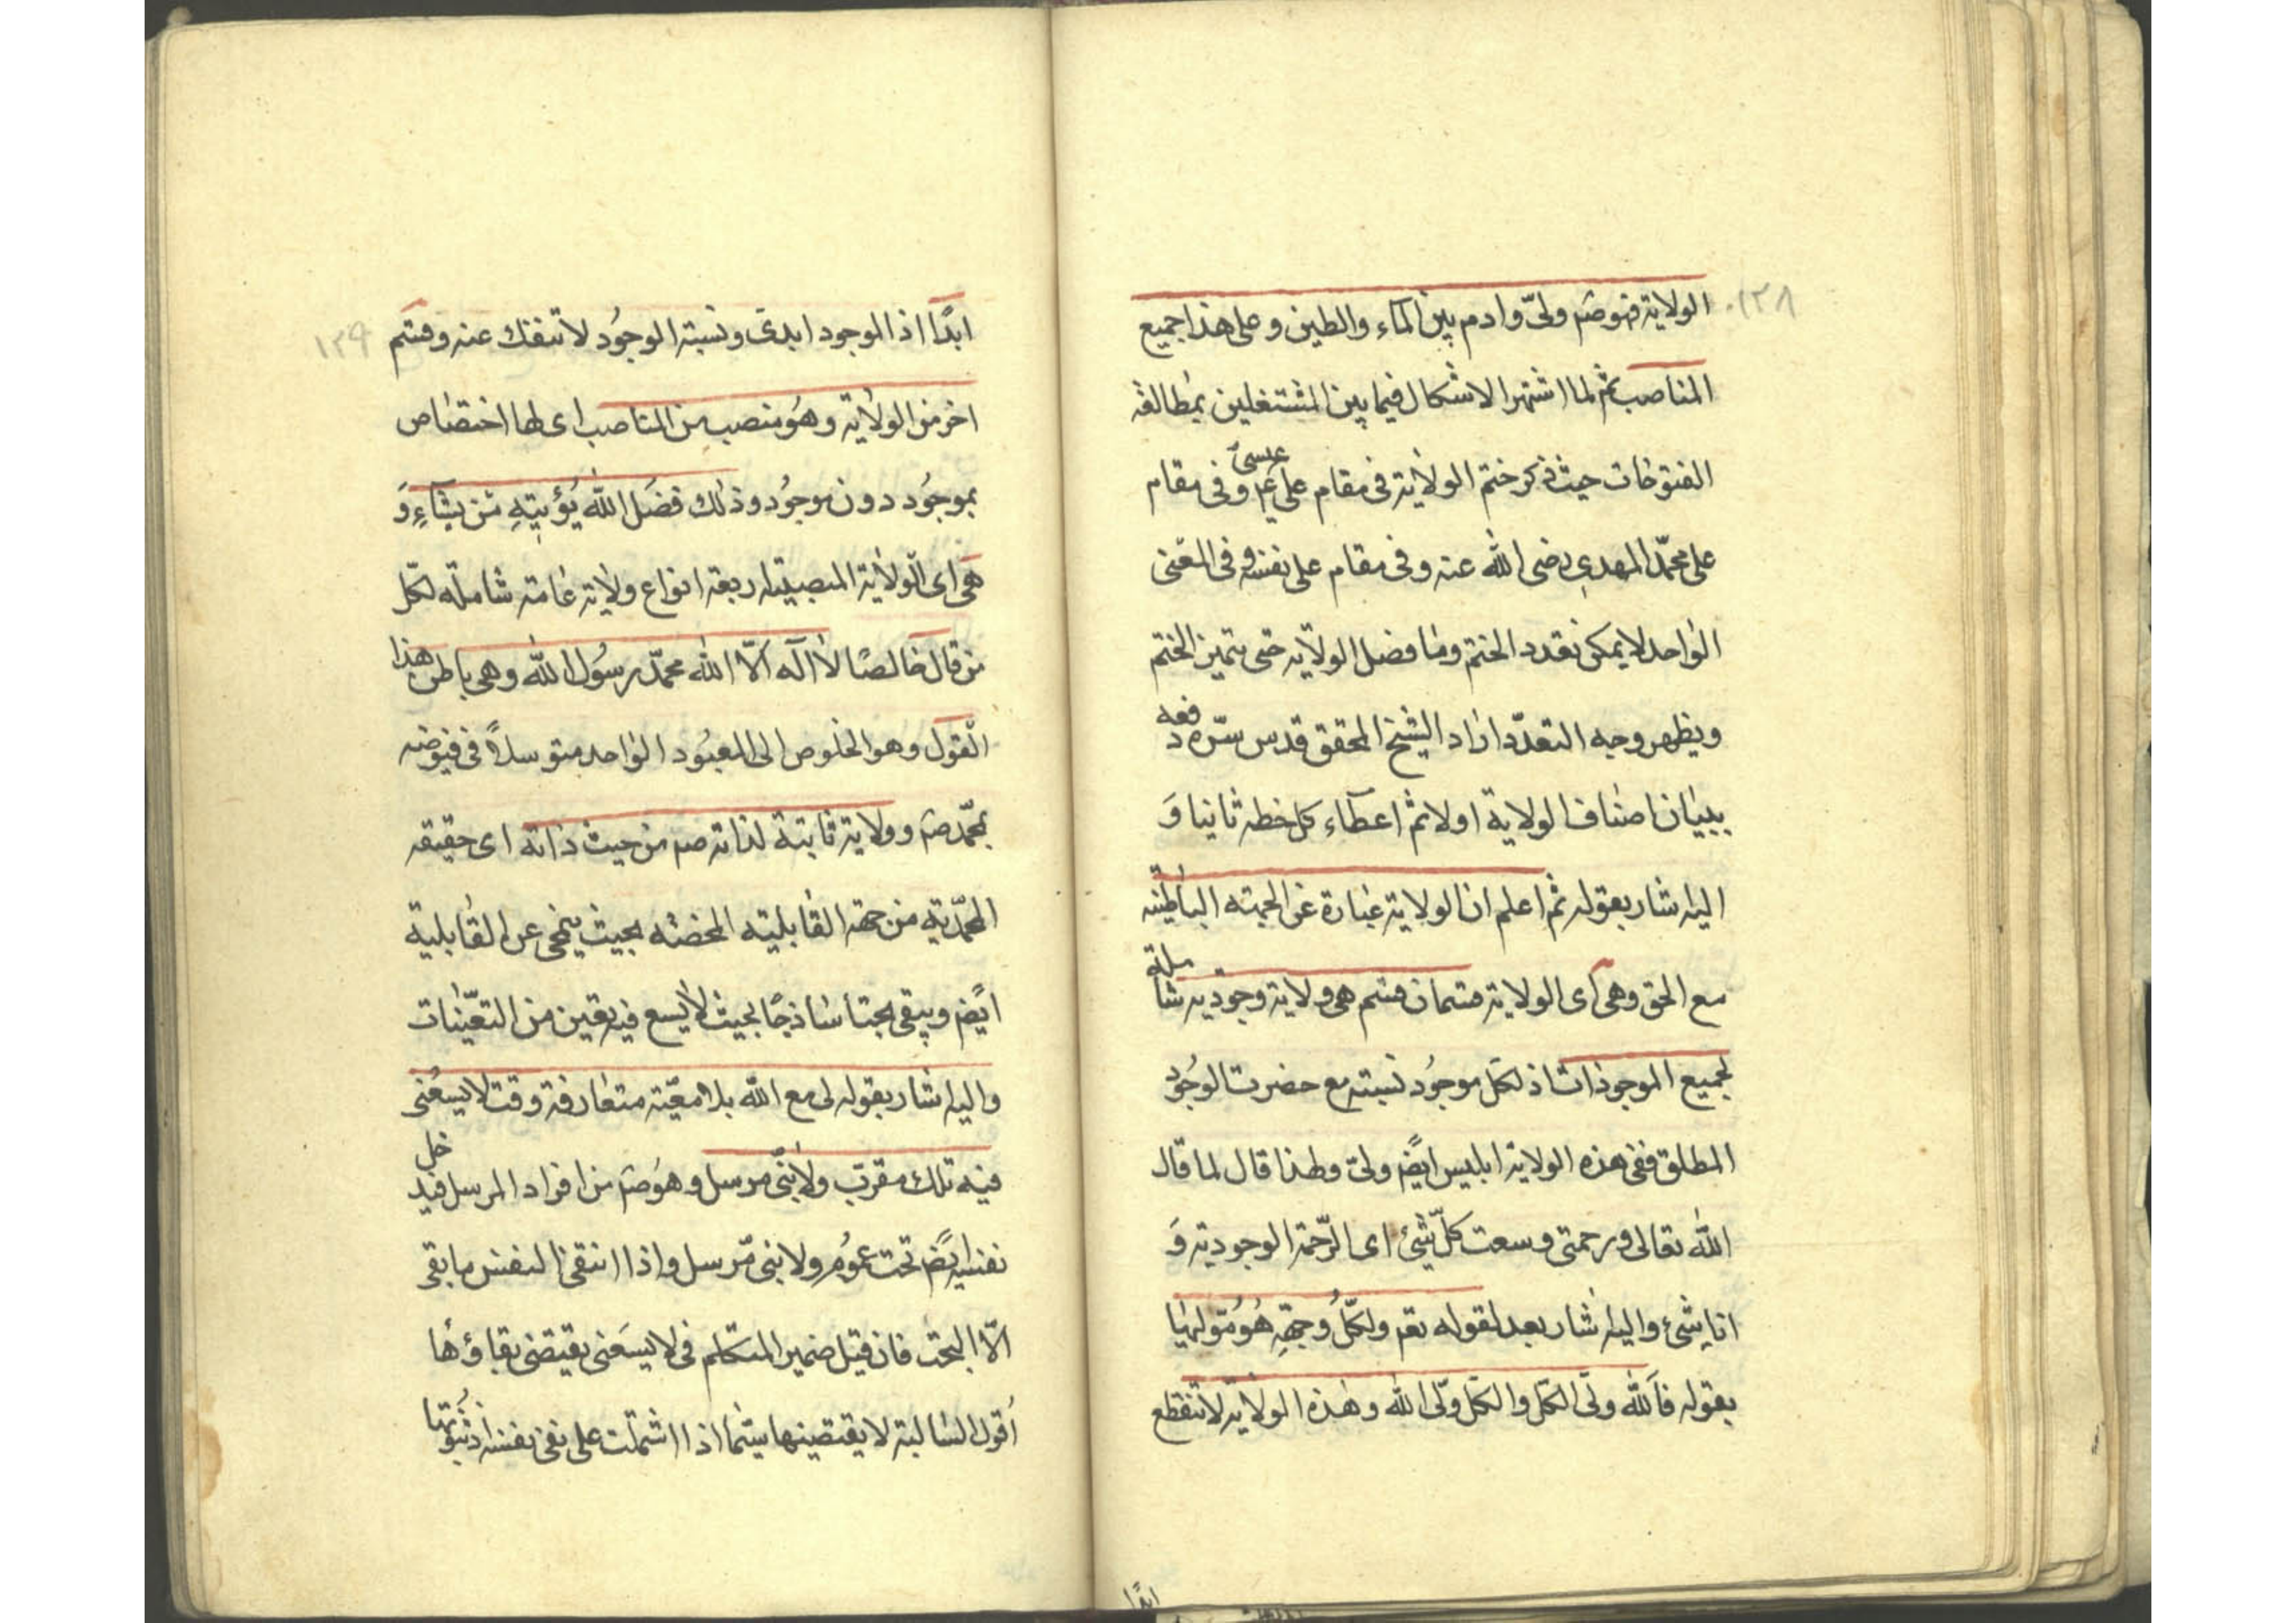 ١٢٨
الولاية فهو صم ولىّ وادم بين المآء والطين وعلى هذا جميع
المناصب ثم لما اشتهر الاشكال فيما بين المشتغلين بمطالعة
الفتوحات حيث ذكر ختم الولاية فى مقام على عيسى عم وفى مقام
على محمّد المهدى رضى الله عنه وفى مقام على نفسه وفى المعنى
الواحد لا يمكن تعدد الختم وما فصل الولاية حتى يتميز الختم
ويظهر وجه التعدّد اراد الشيخ المحقق قدس سرّه دفعه
ببيان اصناف الولاية اولا ثم اعطاء كل خطه ثانيا وَ
اليه اشار بقوله ثم اعلم ان الولاية عبارة عن الجهته الباطنيه
مع الحق وهى اى الولاية قسمان قسم هى ولاية وجوديه شاملة
لجميع الموجودات اذ لكل موجُود نسبته مع حضرت الوجُود
المطلق ففى هذه الولاية ابليس ايضً ولىّ ولهذا قال لما قال
الله تعالى ورحمتى وسعت كلّ شئ اى الرّحمة الوجودية وَ
انا شئ واليه اشار بعد لقوله تعم ولكلٍّ وجهةٌ هُو مُولّيها
بقوله فالله ولىّ الكل والكل ولىّ الله وهذه الولاية لا تنقطع
ابدًا
١٢٩
ابدًا اذ الموجود ابدى ونسبة الوجُود لا تنفك عنه وقسم
اخر من الولاية وهُو منصب من المناصب اى لها اختصاص
بموجُود دون موجُود وذلك فضل الله يُؤتيهِ مَن يشآء وَ
هى اى الولاية المنصبيته اربعة انواع ولاية عامة شاملة لكل
من قال خالصًا لا اله الّا الله محمّد رسُول الله وهى باطن هذا
القول وهو الخلوص الى المعبُود الواحد متوسلاً فى فيوضه
بمحمّد صم وولاية ثابتة لذاته صم من حيث ذاته اى حقيقه
المحمّدية من جهة القابليته المحضه بحيث ينمحى عن القابلية
ايضً ويبقى بحتا ساذجًا بحيث لا يسع فيه تعين من التعيّنات
واليه اشار بقوله لى مع الله بلا معيّته متعارفة وقت لا يسعُنى
فيه ملك مقرّب ولا نبىّ مرسل وهُو صم من افراد المرسل فيدخل
نفسه ايضً تحت عمُوم ولا نبى مّرسل واذا انتفى النفس ما بقى
الّا البحت فان قيل ضمير المتكلم فى لا يسَعنى يقتضى بقاؤها
اقول السالبة لا يقتضيها سيّما اذا اشتملت على نفى نفسه اذ ثبُوتها